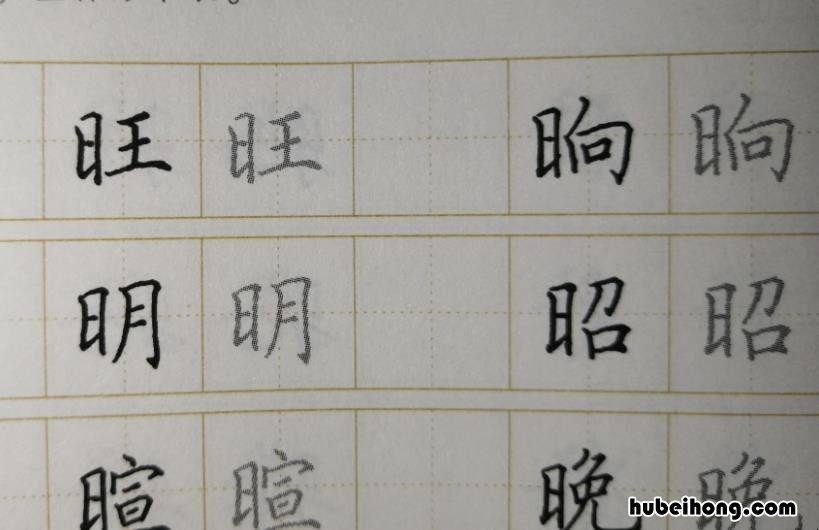 旺 旺 晌 晌
明 明 昭 昭
暄 暄 晚 晚
hubeihong.com